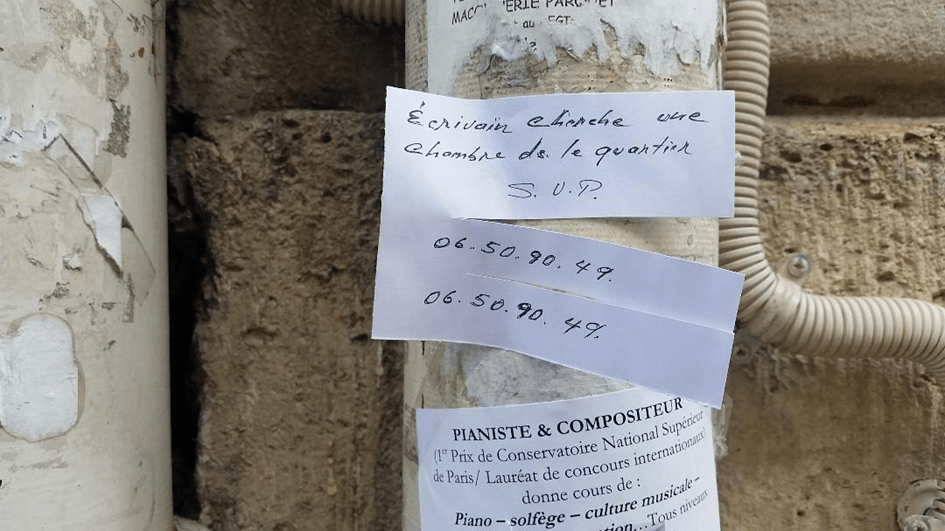 Écrivain cherche une
chambre ds. le quartier
S.V.P.
06.50.90.49.
06.50.90.49.
PIANISTE & COMPOSITEUR
(1er Prix de Conservatoire National Supérieur
de Paris/ Lauréat de concours internationaux)
donne cours de :
Piano – solfège – culture musicale –
Tous niveaux